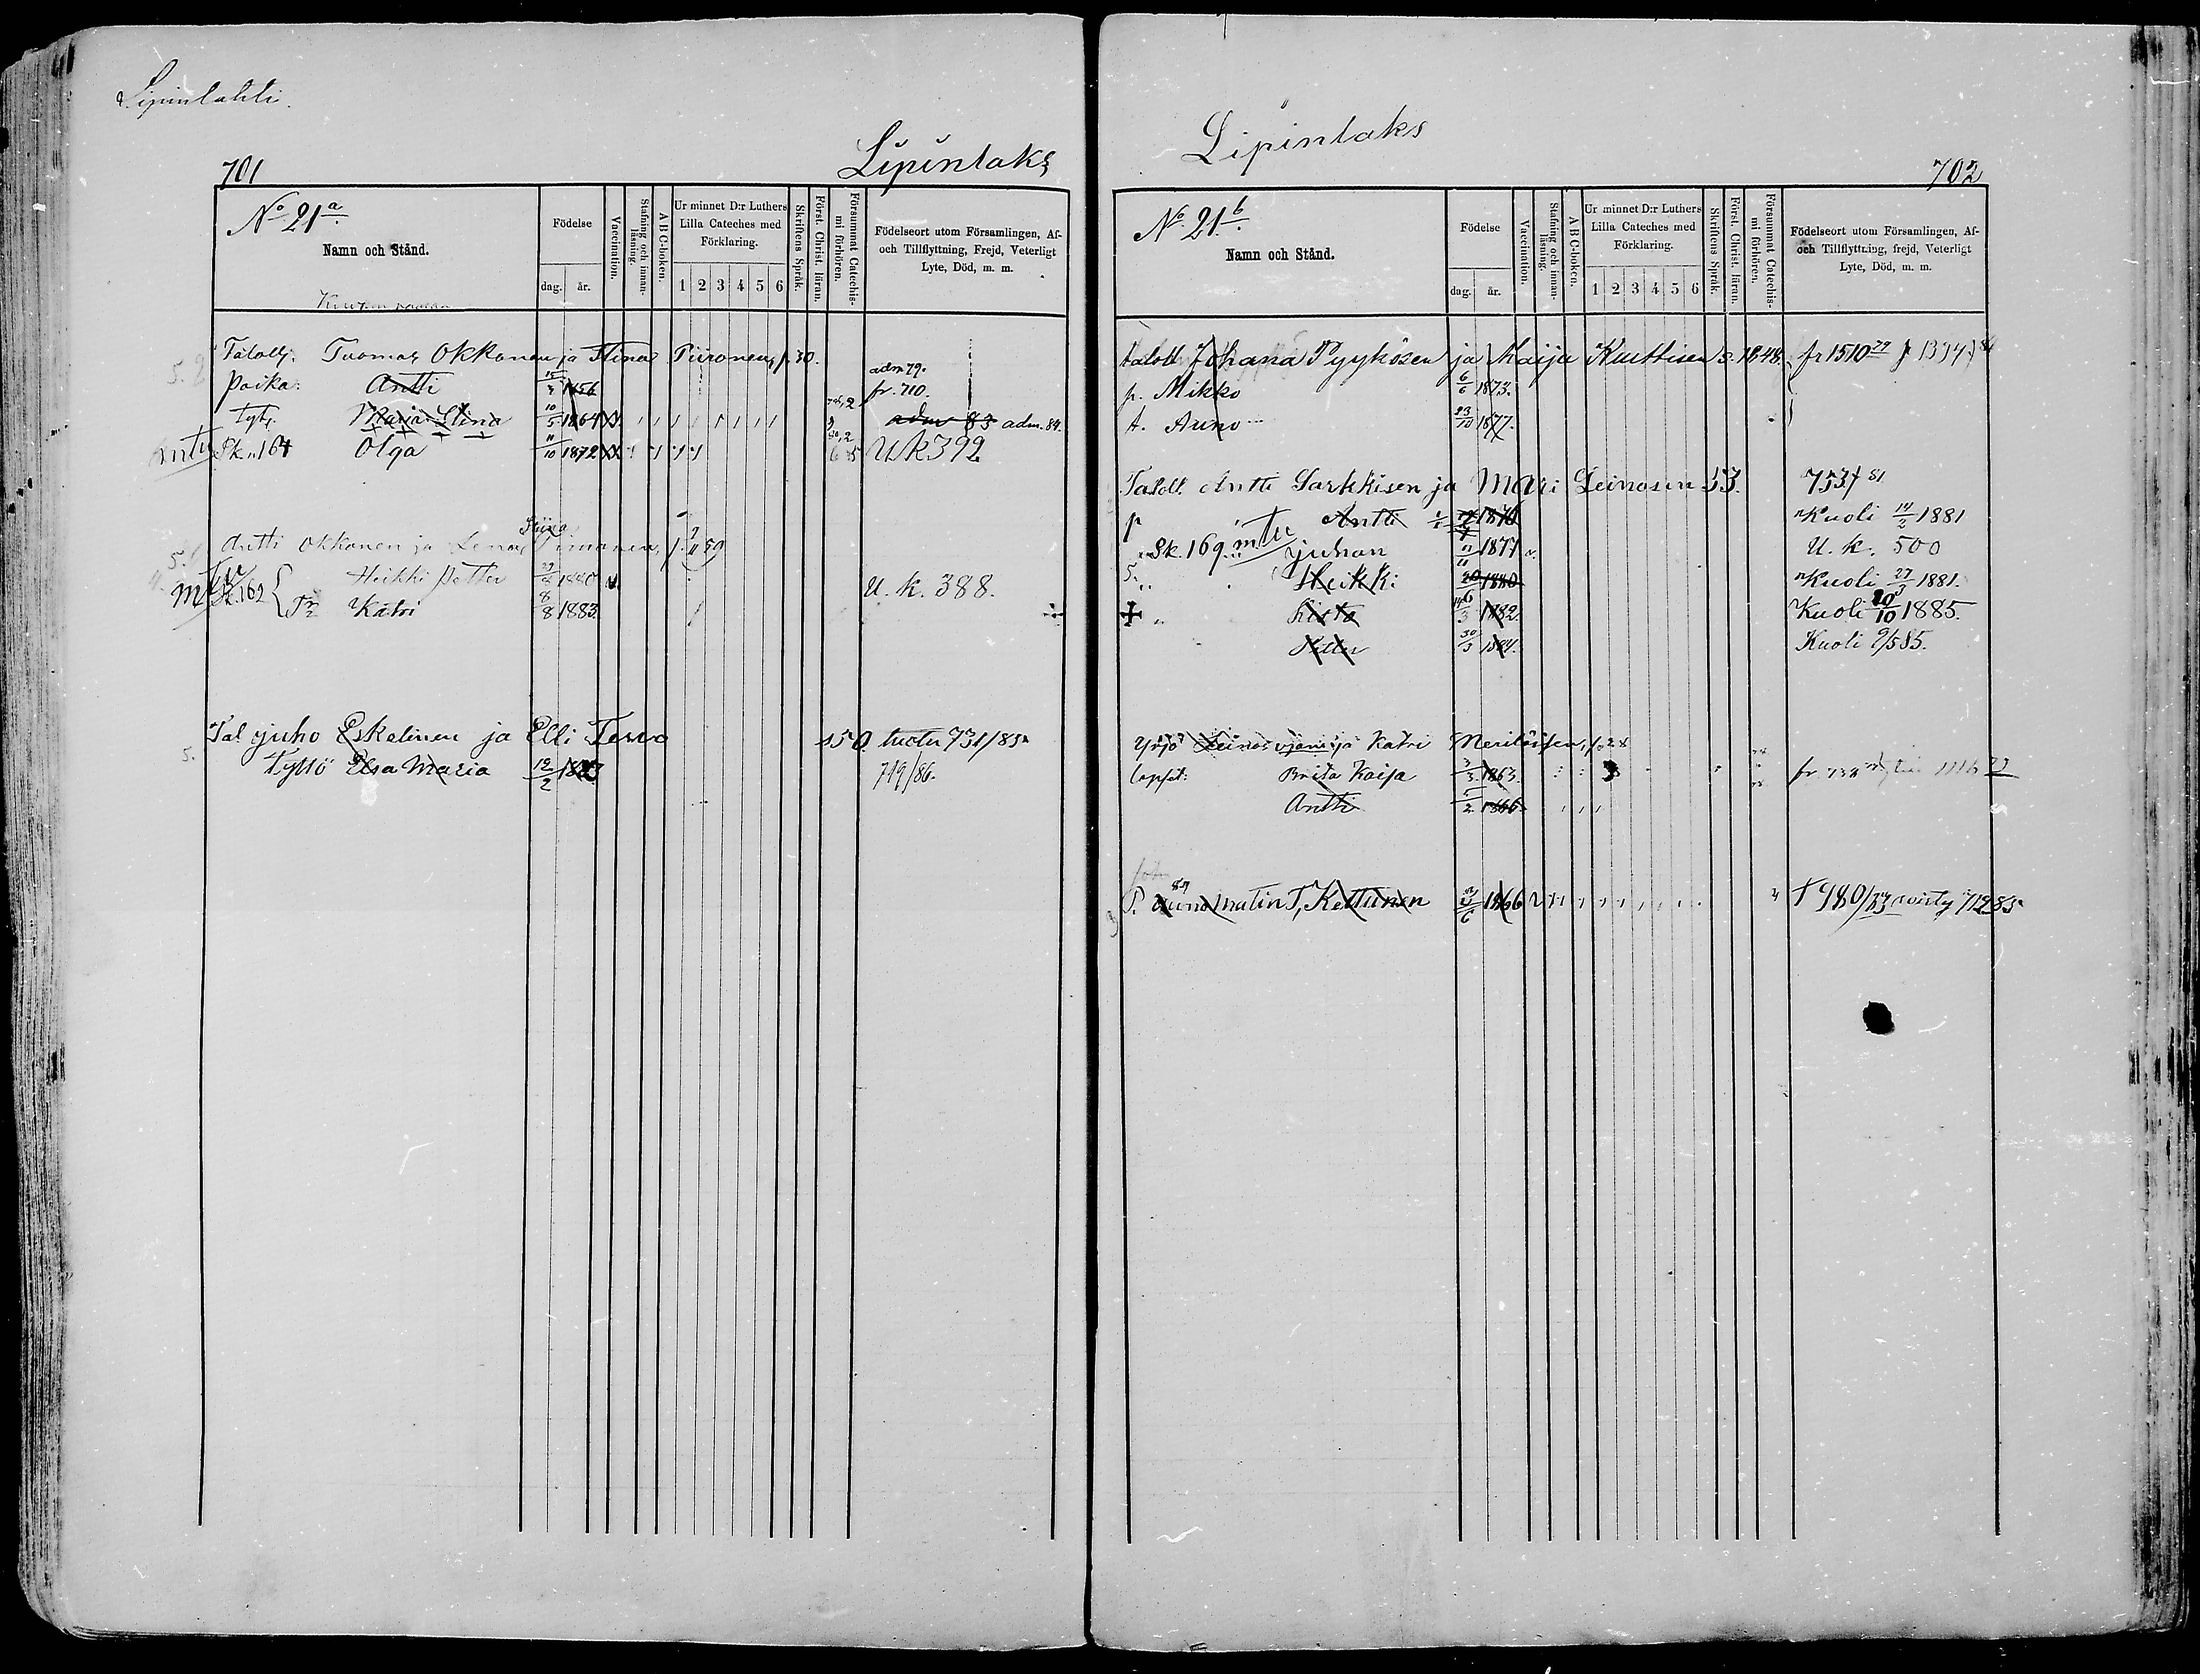 Lipinlahti.
701
Lipinlaks
No 21 a.
Namn och Stånd.
Födelse
dag. år.
Vaccination.
Stafning och innanläsning.
ABC-boken.
Ur minnet D:r Luthers Lilla Cateches med Förklaring.
1 2 3 4 5 6
Skriftens Språk.
Först. Christ. läran.
Försummat Catechismi förhören.
Födelseort utom Församlingen, Af- och Tillflyttning, Frejd, Veterligt Lyte, Död, m. m.
Talol. Tuomas Okkonen ja Stina Piironen, s. 30.
Poika. Antti 15/3 1856 adm 79. fr. 710.
Tytt. Maria Stina 10/5 1864 adm 83 adm. 84.
Sk. 164 Olga 11/10 1872 Uk 392
Antti Okkonen ja Lena Stiina 59
Sk. 162 Heikki Petter 1880 U. k. 388.
Katri 8/8 1883
Tal Juho Eskelinen ja Elli Tervo 50 731/85
Tyttö Elsa Maria 12/2 1883 719/86.
Lipinlaks
702
No 21 b.
Namn och Stånd.
Födelse
dag. år.
Vaccination.
Stafning och innanläsning.
ABC-boken.
Ur minnet D:r Luthers Lilla Cateches med Förklaring.
1 2 3 4 5 6
Skriftens Språk.
Först. Christ. läran.
Försummat Catechismi förhören.
Födelseort utom Församlingen, Af- och Tillflyttning, frejd, Veterligt Lyte, Död, m. m.
taloll Johana Pyykösen ja Maija Kuittisen s. 1848. fr 1510 79
p. Mikko 6/6 1873.
t. Auno 23/10 1877.
Taloll. Antti Sarkkisen ja Mari Leinosen 53. 753 f 81
p Antti 1870 Kuoli 14/2 1881
Sk. 169. Juhan 1877 U. k. 500
Heikki 1880 Kuoli 27/3 1881.
Risto 3 1882. Kuoli 20/10 1885.
Petter 30/3 1884. Kuoli 9/5 85.
Yrjö Leinosen ja Katri Meriläisen,
lapset: Brita Kaisa 3/3 1863.
Antti 5/2 1866
P. Matin T, Kettunen 1866 980/83 712 85